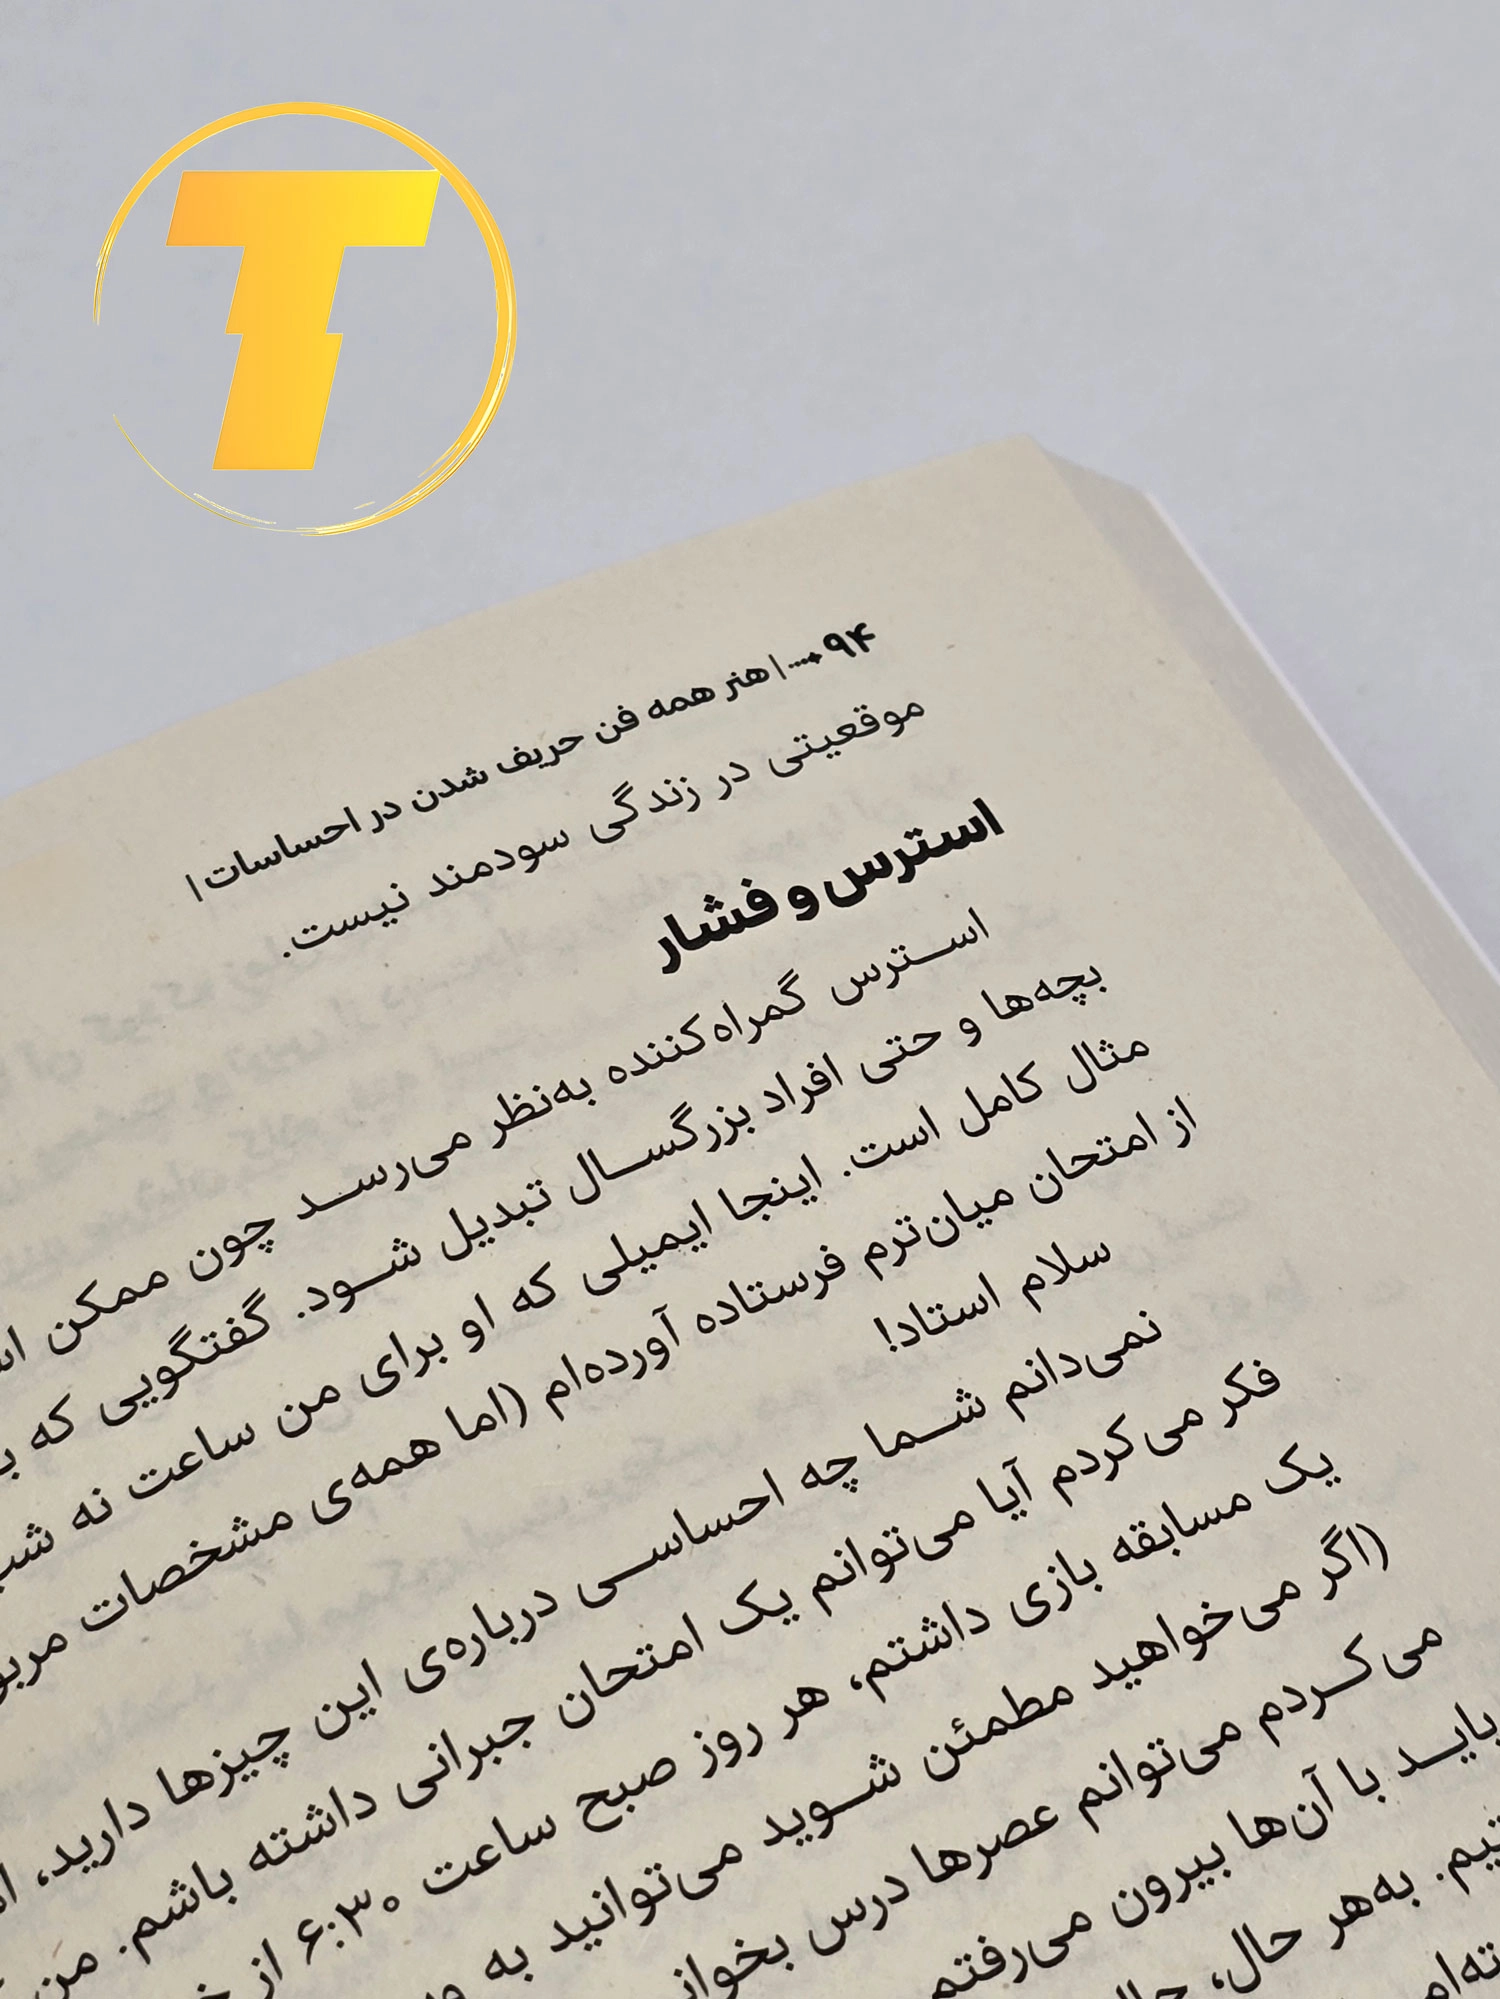 T
۹۴ ....• | هنر همه فن حریف شدن در احساسات |
موقعیتی در زندگی سودمند نیست.
استرس و فشار
استرس گمراه‌کننده به‌نظر می‌رسد چون ممکن
بچه‌ها و حتی افراد بزرگسال تبدیل شود. گفتگویی که
مثال کامل است. اینجا ایمیلی که او برای من ساعت نه
از امتحان میان‌ترم فرستاده آورده‌ام (اما همه‌ی مشخصات
سلام استاد!
نمی‌دانم شما چه احساسی درباره‌ی این چیزها دارید،
فکر می‌کردم آیا می‌توانم یک امتحان جبرانی داشته باشم. من
یک مسابقه بازی داشتم، هر روز صبح ساعت ۶:۳۰ از
(اگر می‌خواهید مطمئن شوید می‌توانید به
می‌کردم می‌توانم عصرها درس
باید با آن‌ها بیرون می‌رفتم
به‌هر حال،